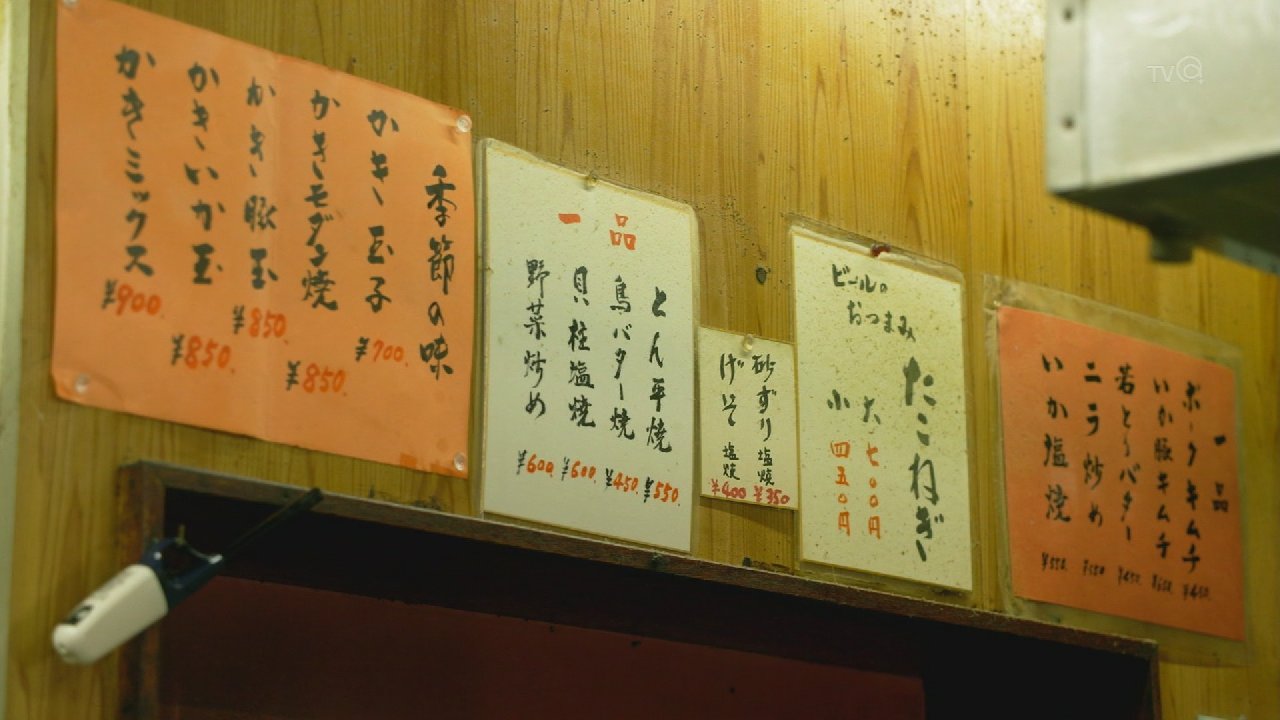 季節の味
かき玉子 ¥700.
かきモダン焼 ¥850.
かき豚玉 ¥850.
かきいか玉 ¥850.
かきミックス ¥900.
一品
とん平焼 ¥550.
鳥バター焼 ¥450.
貝柱塩焼 ¥600.
野菜炒め ¥600.
砂ずり塩焼 ¥350
げそ塩焼 ¥400
ビールの
おつまみ
たこねぎ
大 七〇〇円
小 四五〇円
一品
ポークキムチ ¥650.
いか豚キムチ
若とりバター ¥450.
ニラ炒め
いか塩焼 ¥550.
TVQ